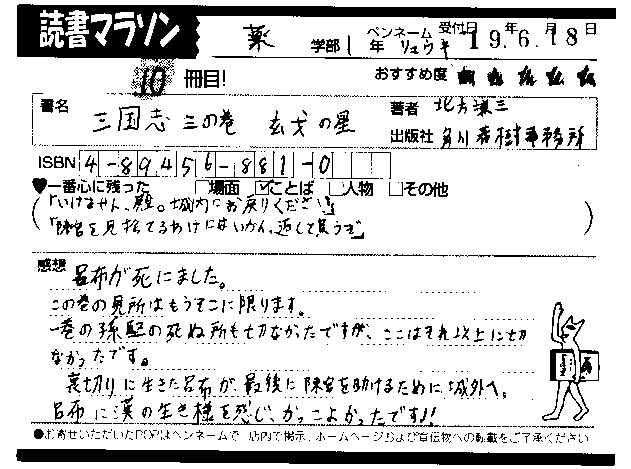 読書マラソン 薬 学部 1 年 ペンネーム リュウキ 受付日 19年6月18日
10 冊目! おすすめ度
書名 三国志 三の巻 玄戈の星
著者 北方謙三
出版社 角川春樹事務所
ISBN 4-89456-881-0
♥一番心に残った □場面 ☑ことば □人物 □その他
(「いけません、殿。城内にお戻りください」
「陳宮を見捨てるわけにはいかん、返して貰うぞ」)
感想 呂布が死にました。
この巻の見所はもうそこに限ります。
一巻の孫堅の死ぬ所も切なかったですが、ここはそれ以上に切
なかったです。
裏切りに生きた呂布が、最後に陳宮を助けるために城外へ。
呂布に漢の生き様を感じ、かっこよかったです!!
●お寄せいただいたPOPはペンネームで、店内で掲示、ホームページおよび宣伝物への転載をご了承ください